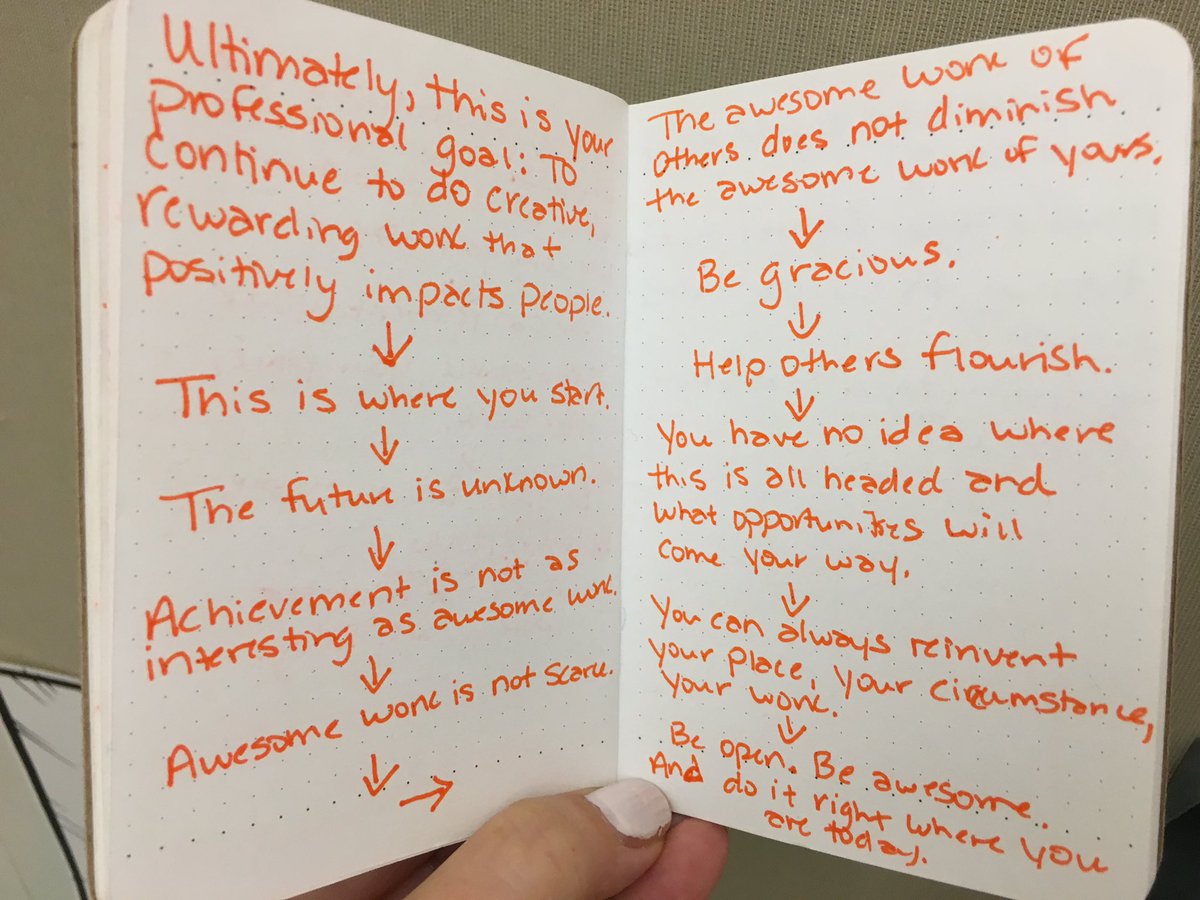 Ultimately, this is your
professional goal: To
continue to do creative,
rewarding work that
positively impacts people.
↓
This is where you start.
↓
The future is unknown.
↓
Achievement is not as
interesting as awesome work.
↓
Awesome work is not scarce.
↓ →
The awesome work of
others does not diminish
the awesome work of yours.
↓
Be gracious.
↓
Help others flourish.
↓
You have no idea where
this is all headed and
what opportunities will
come your way.
↓
You can always reinvent
your place, your circumstance,
your work.
↓
Be open. Be awesome.
And do it right where you
are today.